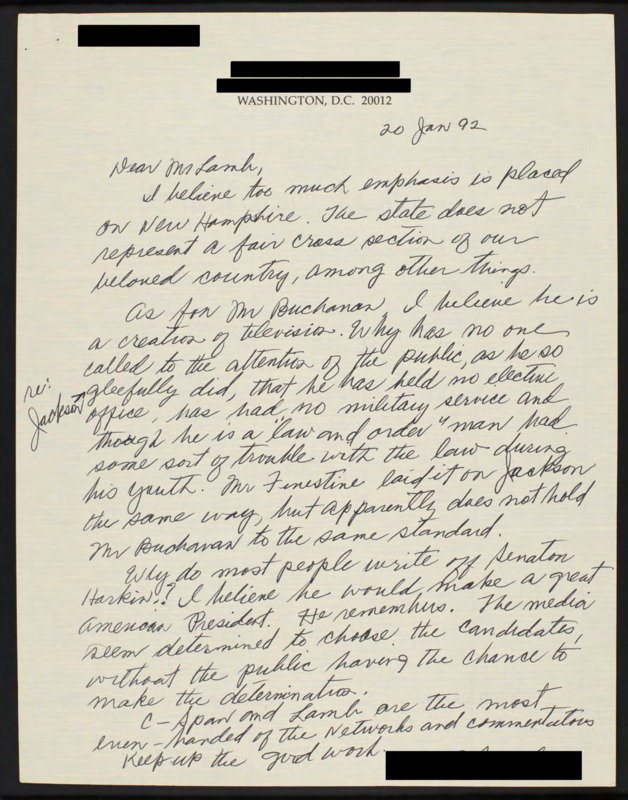 WASHINGTON, D.C. 20012
20 Jan 92
Dear Mr Lamb,
I believe too much emphasis is placed
on New Hampshire. The state does not
represent a fair cross section of our
beloved country, among other things.
As for Mr Buchanan, I believe he is
a creation of television. Why has no one
called to the attention of the public, as he so
re: Jackson
gleefully did, that he has held no elective
office, has had no military service and
though he is a "law and order" man had
some sort of trouble with the law during
his youth. Mr Finestine laid it on Jackson
the same way, but apparently does not hold
Mr Buchanan to the same standard.
Why do most people write off Senator
Harkin!? I believe he would make a great
American President. He remembers. The media
seem determined to choose the candidates,
without the public having the chance to
make the determination.
C-Span and Lamb are the most
even-handed of the Networks and commentators
Keep up the good work.